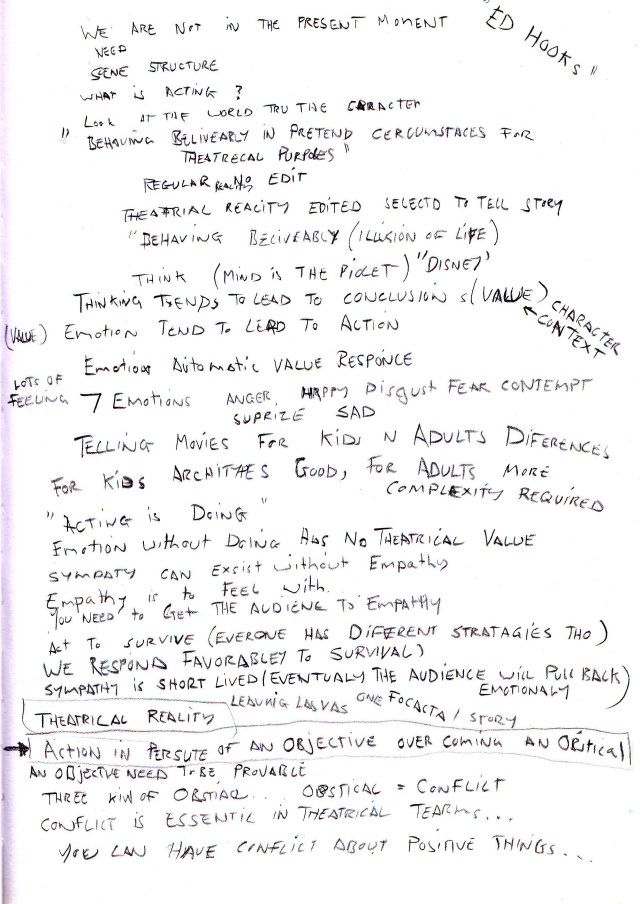 "ED HOOKS"
WE ARE NOT IN THE PRESENT MOMENT
NEED
SCENE STRUCTURE
WHAT is ACTING ?
Look AT THE WORLD TRU THE CARACTER
"BEHAVING BELIVEABLY IN PRETEND CERCUMSTACES FOR
THEATRECAL PURPOSES"
REGULAR REALITY NO EDIT
THEATRIAL REALITY EDITED SELECTD TO TELL STORY
"BEHAVING BELIVEABLY (ILLUSION OF LIFE)
THINK (MIND IS THE PIOLET) "DISNEY"
THINKING TSENDS TO LEAD TO CONCLUSION S (VALUE) CHARACTER
CONTEXT
(VALUE) EMOTION TEND TO LEAD TO ACTION
Emotion Automatic VALUE RESPONCE
LOTS OF
FEELING 7 EMOTIONS ANGER HAPPY DISGUST FEAR CONTEMPT
SUPRIZE SAD
TELLING MOVIES FOR KIDS N ADULTS DIFERENCES
FOR KIDS GOOD, FOR ADULTS MORE
COMPLEXITY REQUIRED
"ACTING is DOING"
Emotion without DOING HAS NO THEATRICAL VALUE
SYMPATY CAN EXSIST WITHOUT Empathy
Empathy is to FEEL WITH.
YOU NEED to GET THE AUDIENE TO EMPATHY
ACT TO SURVIVE (EVERONE HAS DIFFERENT STRATAGIES THO)
WE RESPOND FAVORABLEY TO SURVIVAL)
SYMPATHY is SHORT LIVED (EVENTUALY THE AUDIENCE WILL PULL BACK)
EMOTIONALY
THEATRICAL REALITY LEAVING LASVAS ONE / STORY
ACTION IN PERSUTE OF AN OBJECTIVE OVER COMING AN OBSTICAL
AN OBJECTIVE NEED TO BE PROVABLE
THREE KIN OF OBSTIACL.. OBSTICAL = CONFLICT
CONFLICT IS ESSENTIC IN THEATRICAL TEARMS...
YOU CAN HAVE CONFLICT ABOUT POSITIVE THINGS...